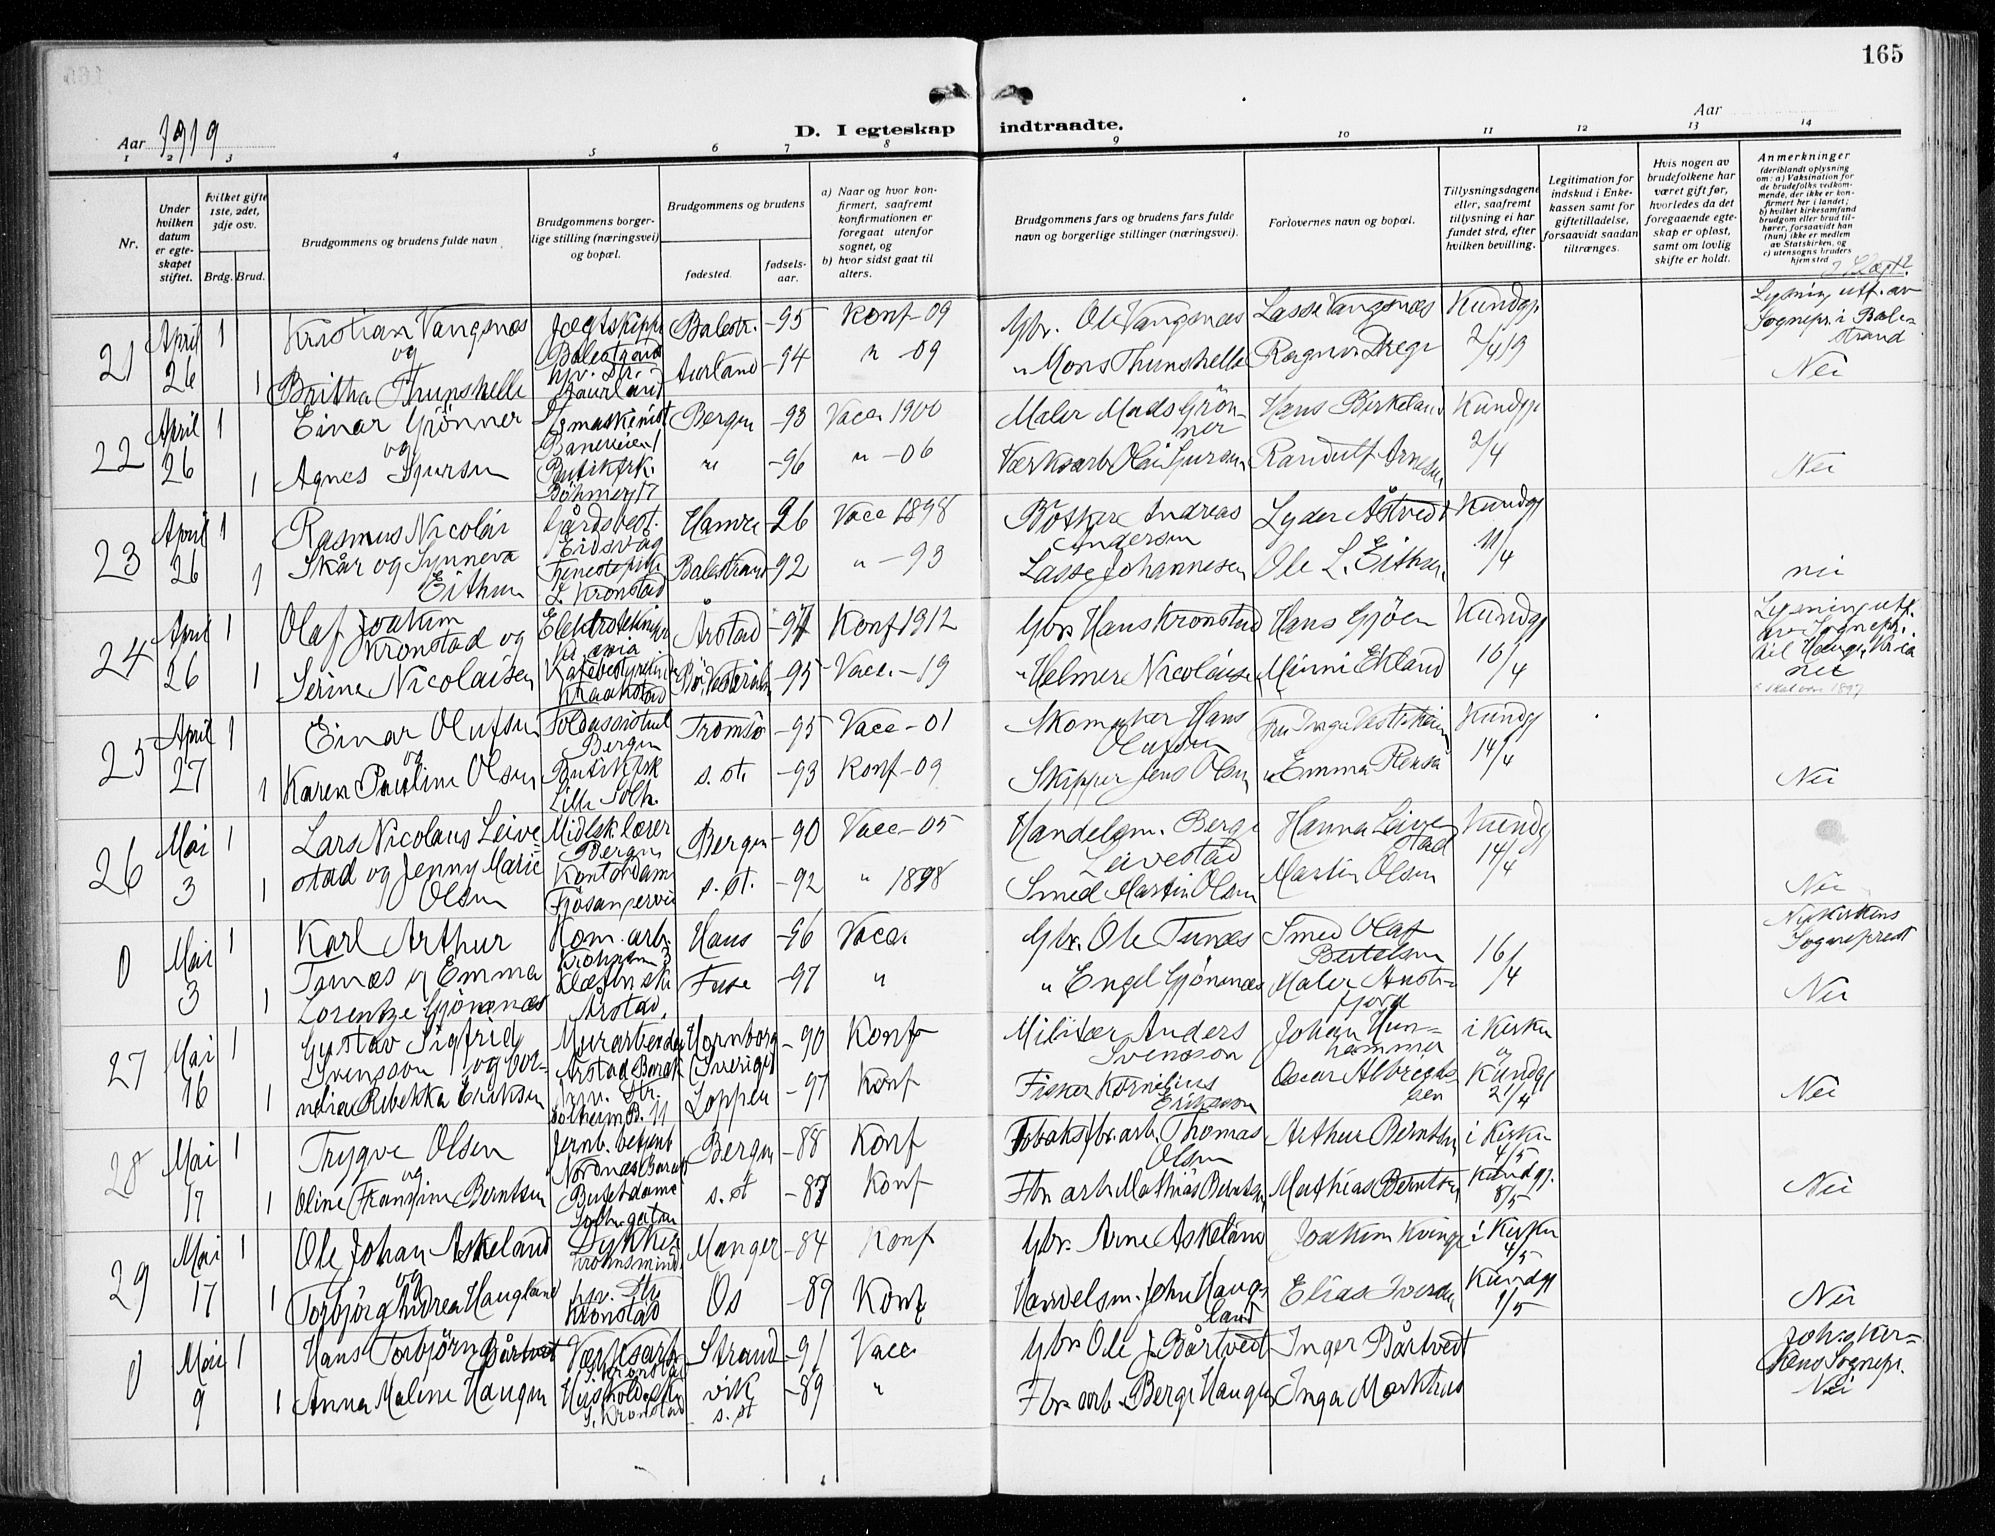 165
Aar 1919
D. I egteskap indtraadte.
Aar
1 2 3 4 5 6 7 8 9 10 11 12 13 14
Nr.
Under hvilken datum er egteskapet stiftet.
hvilket gifte 1ste, 2det, 3dje osv.
Brdg. Brud.
Brudgommens og brudens fulde navn
Brudgommens borgerlige stilling (næringsvei) og bopæl.
Brudgommens og brudens
fødested.
fødselsaar.
a) Naar og hvor konfirmert, saafremt konfirmationen er foregaat utenfor sognet, og
b) hvor sidst gaat til alters.
Brudgommens fars og brudens fars fulde navn og borgerlige stillinger (næringsvei).
Forlovernes navn og bopæl.
Tillysningsdagene eller, saafremt tillysning ei har fundet sted, efter hvilken bevilling.
Legitimation for indskud i Enkekassen samt for giftetilladelse, forsaavidt saadan tiltrænges.
Hvis nogen av brudefolkene har været gift før, hvorledes da det foregaaende egteskap er opløst, samt om lovlig skifte er holdt.
Anmerkninger (deriblandt oplysning om: a) Vaksination for de brudefolks vedkommende, der ikke er konfirmert her i landet; b) hvilket kirkesamfund brudgom eller brud tilhører, forsaavidt han (hun) ikke er medlem av Statskirken, og c) utensogns bruders hjemsted
21 April 26 1 Kristian Vangsnæs Jægtskipp. Balestrand Balestr. -95 Konf -09 Gbr. Ole Vangsnæs Lasse Vangsnæs Kundgj. 2/4 19 Lysning utf. av Sognepr. i Balestrand
og
1 Britha Thunshelle hsv. Str. Aurland Aurland -94 " -09 " Mons Thunshelle Ragnv. Drege Nei
22 April 26 1 Einar Grønner maskinist Baneveien 1 Bergen -93 Vacc 1900 Maler Mads Grønner Hans Birkeland Kundgj. 2/4
og
1 Agnes Sjursen Butikksk. Bøhmerg 17 " -96 " -06 Værksarb. Olai Sjursen Randulf Arnesen Nei
23 April 26 1 Rasmus Nicolai Gårdsbest. Eidsvåg Hamre 26 Vacc 1898 Bøtker Andreas Andersen Lyder Åstvedt Kundgj 11/4
Skår og Synneva
1 Eithun Tjenestepike Kronstad Balestrand 92 " -93 Lasse Johannesen Ole L. Eithun nei
24 April 26 1 Olaf Joakim Elektrotekniker Kr.ania Årstad -97 Konf 1912 Gbr Hans Kronstad Hans Gjøen Kundgj 10/4
Kronstad og
1 Serine Nicolaisen Kraakstad -95 Vacc. -19 " Helmer Nicolaisen Minni Ekland nei
skal være 1897
25 April 27 1 Einar Olufsen Toldassistent Bergen Tromsø -95 Vacc -01 Skomaker Hans Olufsen Kundgj 14/4
og
1 Karen Pauline Olsen Butikksk Lille Solh. s. st. -93 Konf -09 Skipper Jens Olsen " Emma Renså Nei
26 Mai 3 1 Lars Nicolaus Leive- Midlsk lærer Bergen Bergen -90 Vacc -05 Handelsm. Berge Leivestad Hanna Leivestad Kundgj 14/4
stad og Jenny Marie
1 Olsen Kontordame Fjøsangervei s. st. -92 " 1898 Smed Martin Olsen Martin Olsen Nei
0 Mai 3 1 Karl Arthur Kom. arb. Haus -96 Vacc. Gbr. Ole Tunæs Smed Olaf Bertelsen 16/4 Nykirkens Sogneprest
Tunæs og Emma
1 Lorentze Gjønnæs Årstad. Fuse -97 " " Engel Gjønnæs Maler Nei
27 Mai 16 1 Gustav Sigfrid Murarbeider Årstad Barak Hornborg (Sverige) -90 Konf Militær Anders Svensson Johan Hunhammer i kirken og Kundgj 21/4
Svensson og Cor-
1 nelia Rebekka Eriksen hsv. Str. Solheim B. 11 Loppen -97 Konf Fisker Kornelius Eriksson Oscar Albrechtsen Nei
28 Mai 17 1 Trygve Olsen Jernb. betjent Nordnæs Barak Bergen -88 Konf Tobaksfbr. arb. Thomas Olsen Arthur Berntsen i kirken 4/5
og
1 Oline Fransine Berntsen Bufetdame Solh. gaten s. st -87 Konf Fbr arb. Mathias Berntsen Mathias Berntsen Kundgj. 8/5 Nei
29 Mai 17 1 Ole Johan Askeland Dykker Kronsmind. Manger -84 Konf Gbr. Arne Askeland Joakim Kvinge i Kirken 4/5
og
1 Torbjørg Andrea Haugland hsv. Str Kronstad Os -89 Konf Handelsm. John Haugland Elias Iversen Kundgj 1/5 Nei
0 Mai 9 1 Hans Torbjørn Bårtvedt Værksarb. Kronstad Strand -91 Vacc Gbr Ole J. Bårtvedt Inger Bårtvedt Joh.skirkens Sognepr.
1 Anna Malene Haugen Kronstad vik s. st -89 " Fbr. arb. Berge Haugen Inga Marktrud Nei